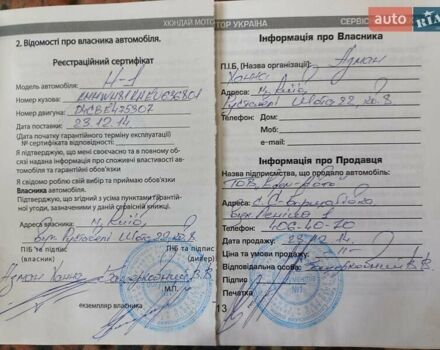 ХЮНДАЙ МОТОР УКРАЇНА
СЕРВІС
auto RIA
2. Відомості про власника автомобіля.
Реєстраційний сертифікат
Модель автомобіля: H-1
Номер кузова:
Номер двигуна: D4CBE475307
Дата поставки: 23.12.14
(Дата початку гарантійного терміну експлуатації)
№ сертифіката відповідності:
Я підтверджую, що мені своєчасно та в повному об-
сязі надана інформація про споживчі властивості авто-
мобіля та гарантійні зобов'язання
Я свідомо роблю свій вибір та приймаю зобов'язання
Власника автомобіля.
Підтверджую, що згідний з усіма пунктами гарантій-
ної угоди, зазначеними у даній сервісній книжці.
Адреса власника м. Київ,
вул. Руставелі Шота 22, кв. 8
П.І.Б та підпис
(власник)
П.І.Б та підпис
(дилер)
Азман Ханна
М.П.
екземпляр власника
Інформація про Власника
П.І.Б. (Назва організації): Азман
Ханна
Адреса: м. Київ
Руставелі Шота 22, кв. 8
Телефон: Дом:
Моб:
e-mail:
Інформація про Продавця
Назва підприємства, що продало автомобіль:
ТОВ
Адреса: с. С-Борщагівка
вул.
Телефон: 406-40-70
Дата продажу: 23.12.14
Ціна та умови продажу:
Відповідальна особа:
Підпис
Печатка
13